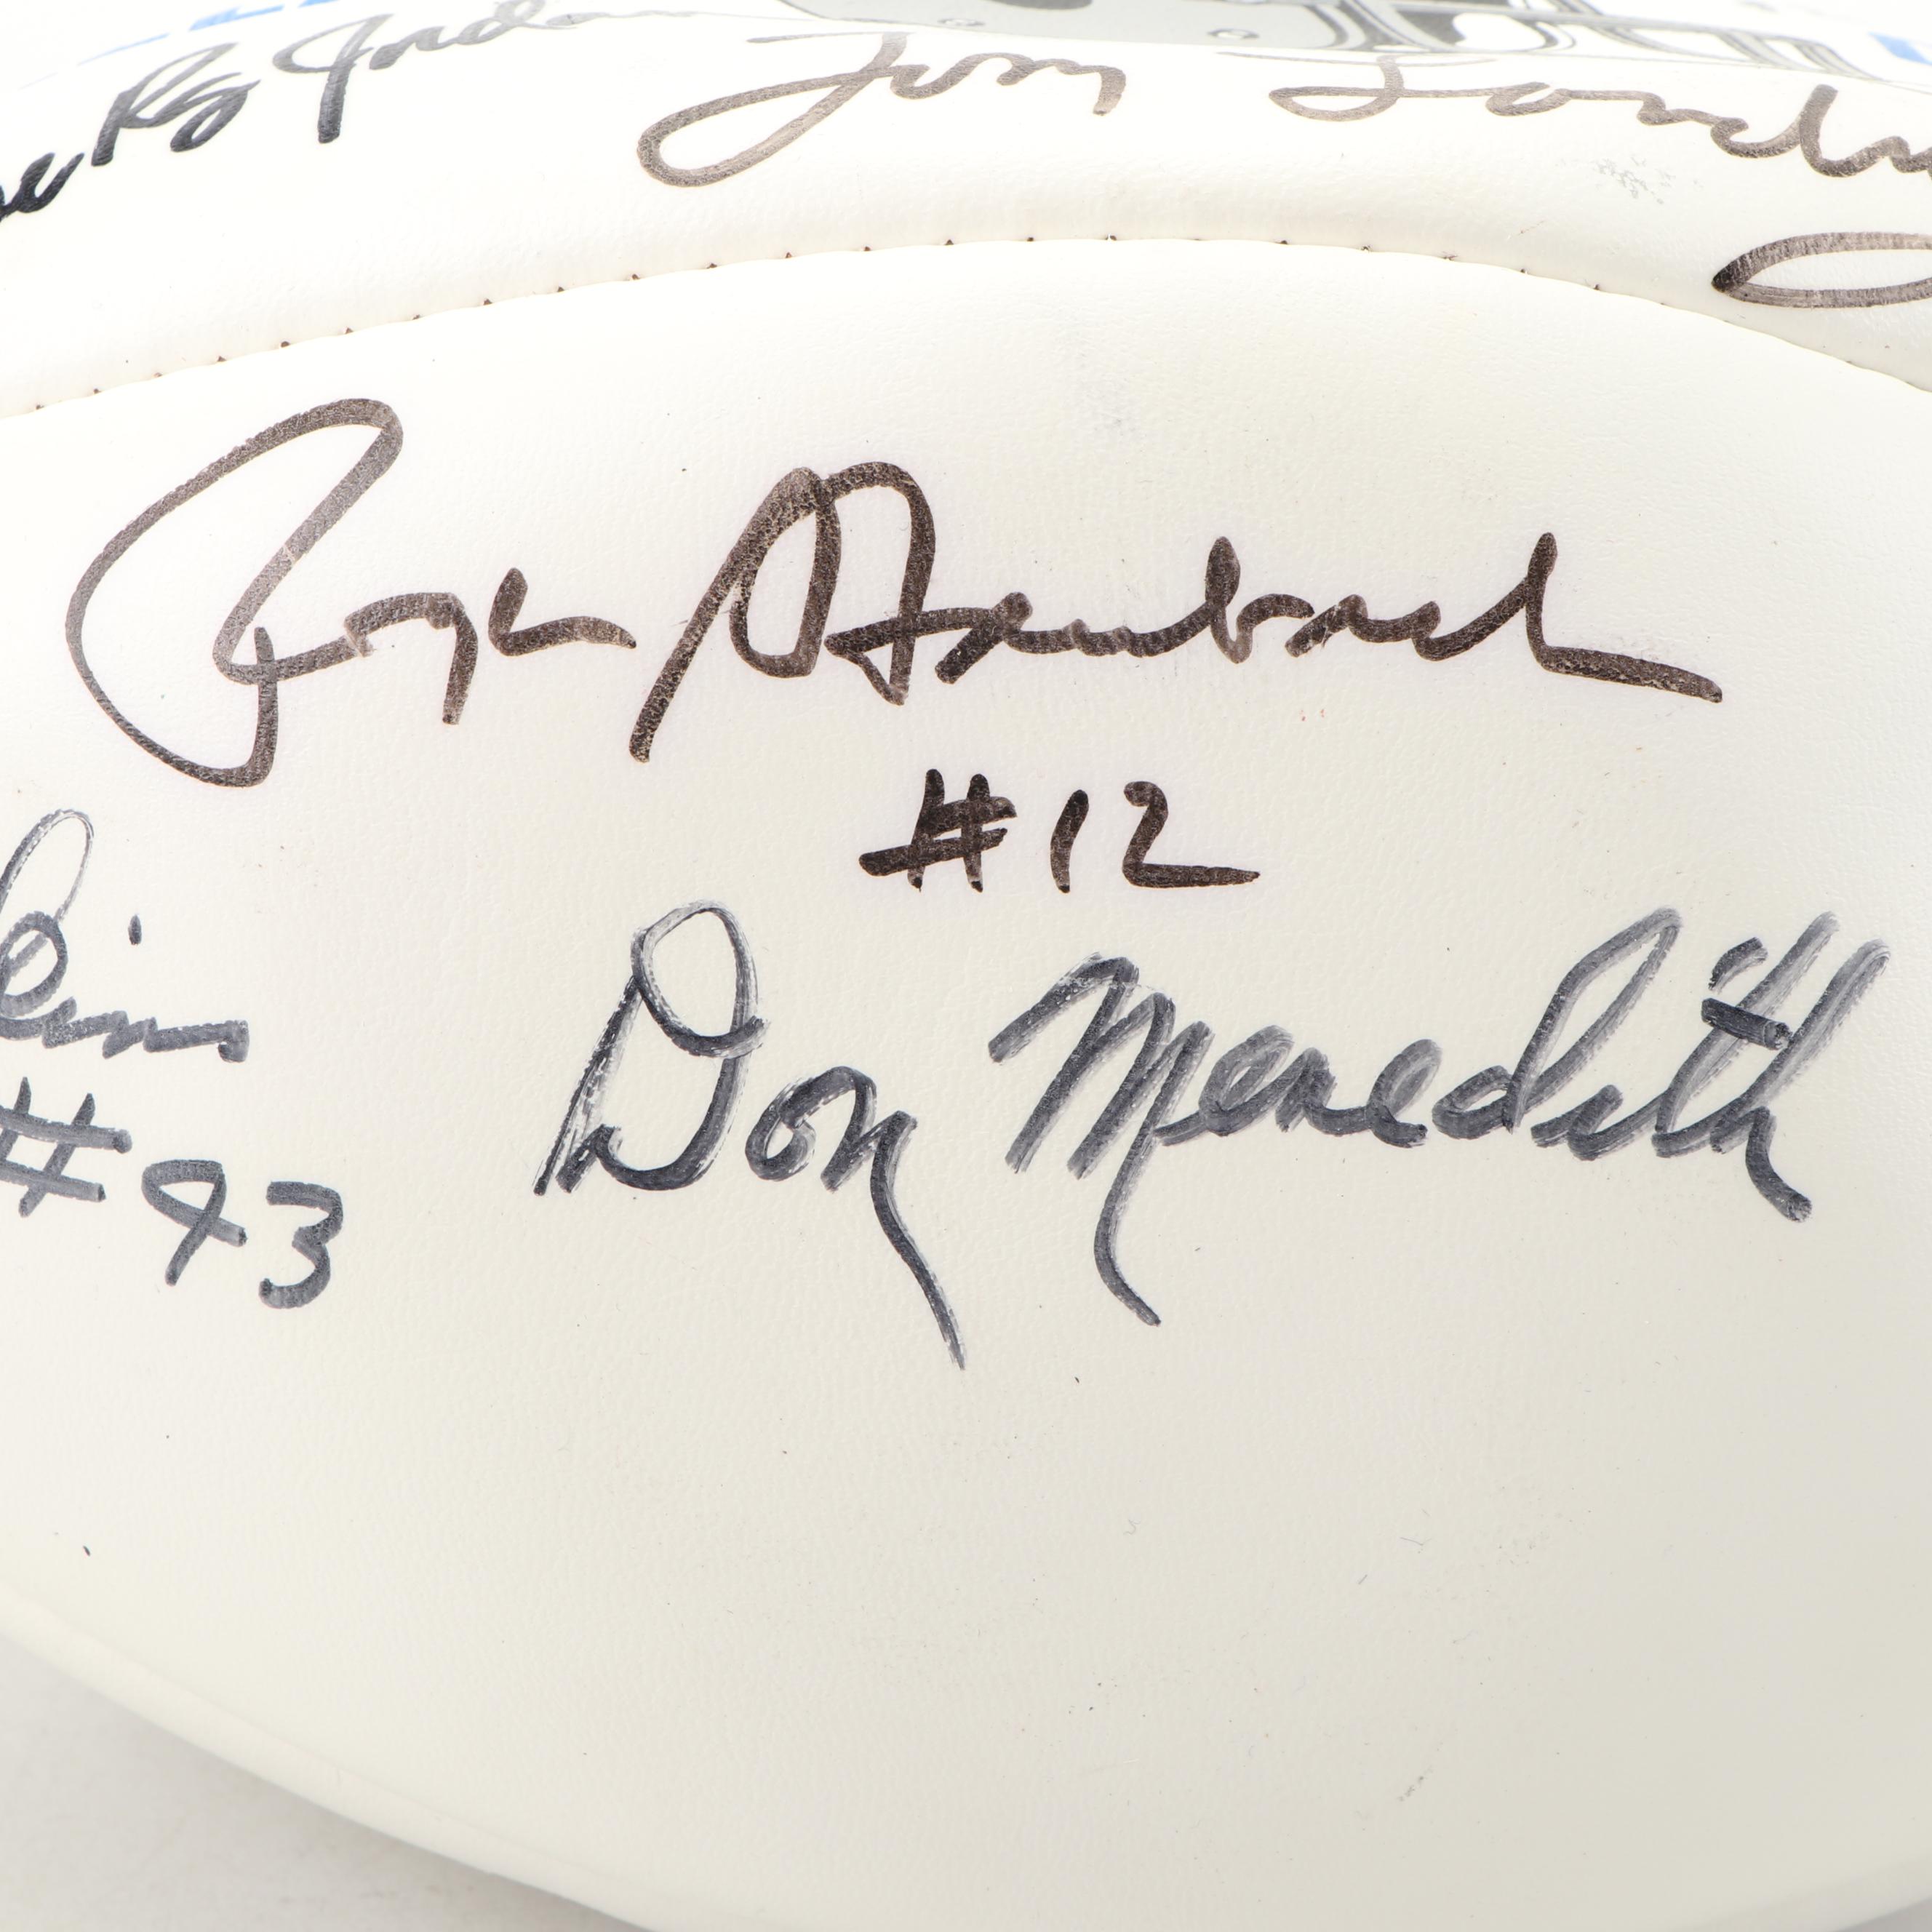 Jordan
Tom Landry
Roger Staubach
#12
Don Meredith
#43